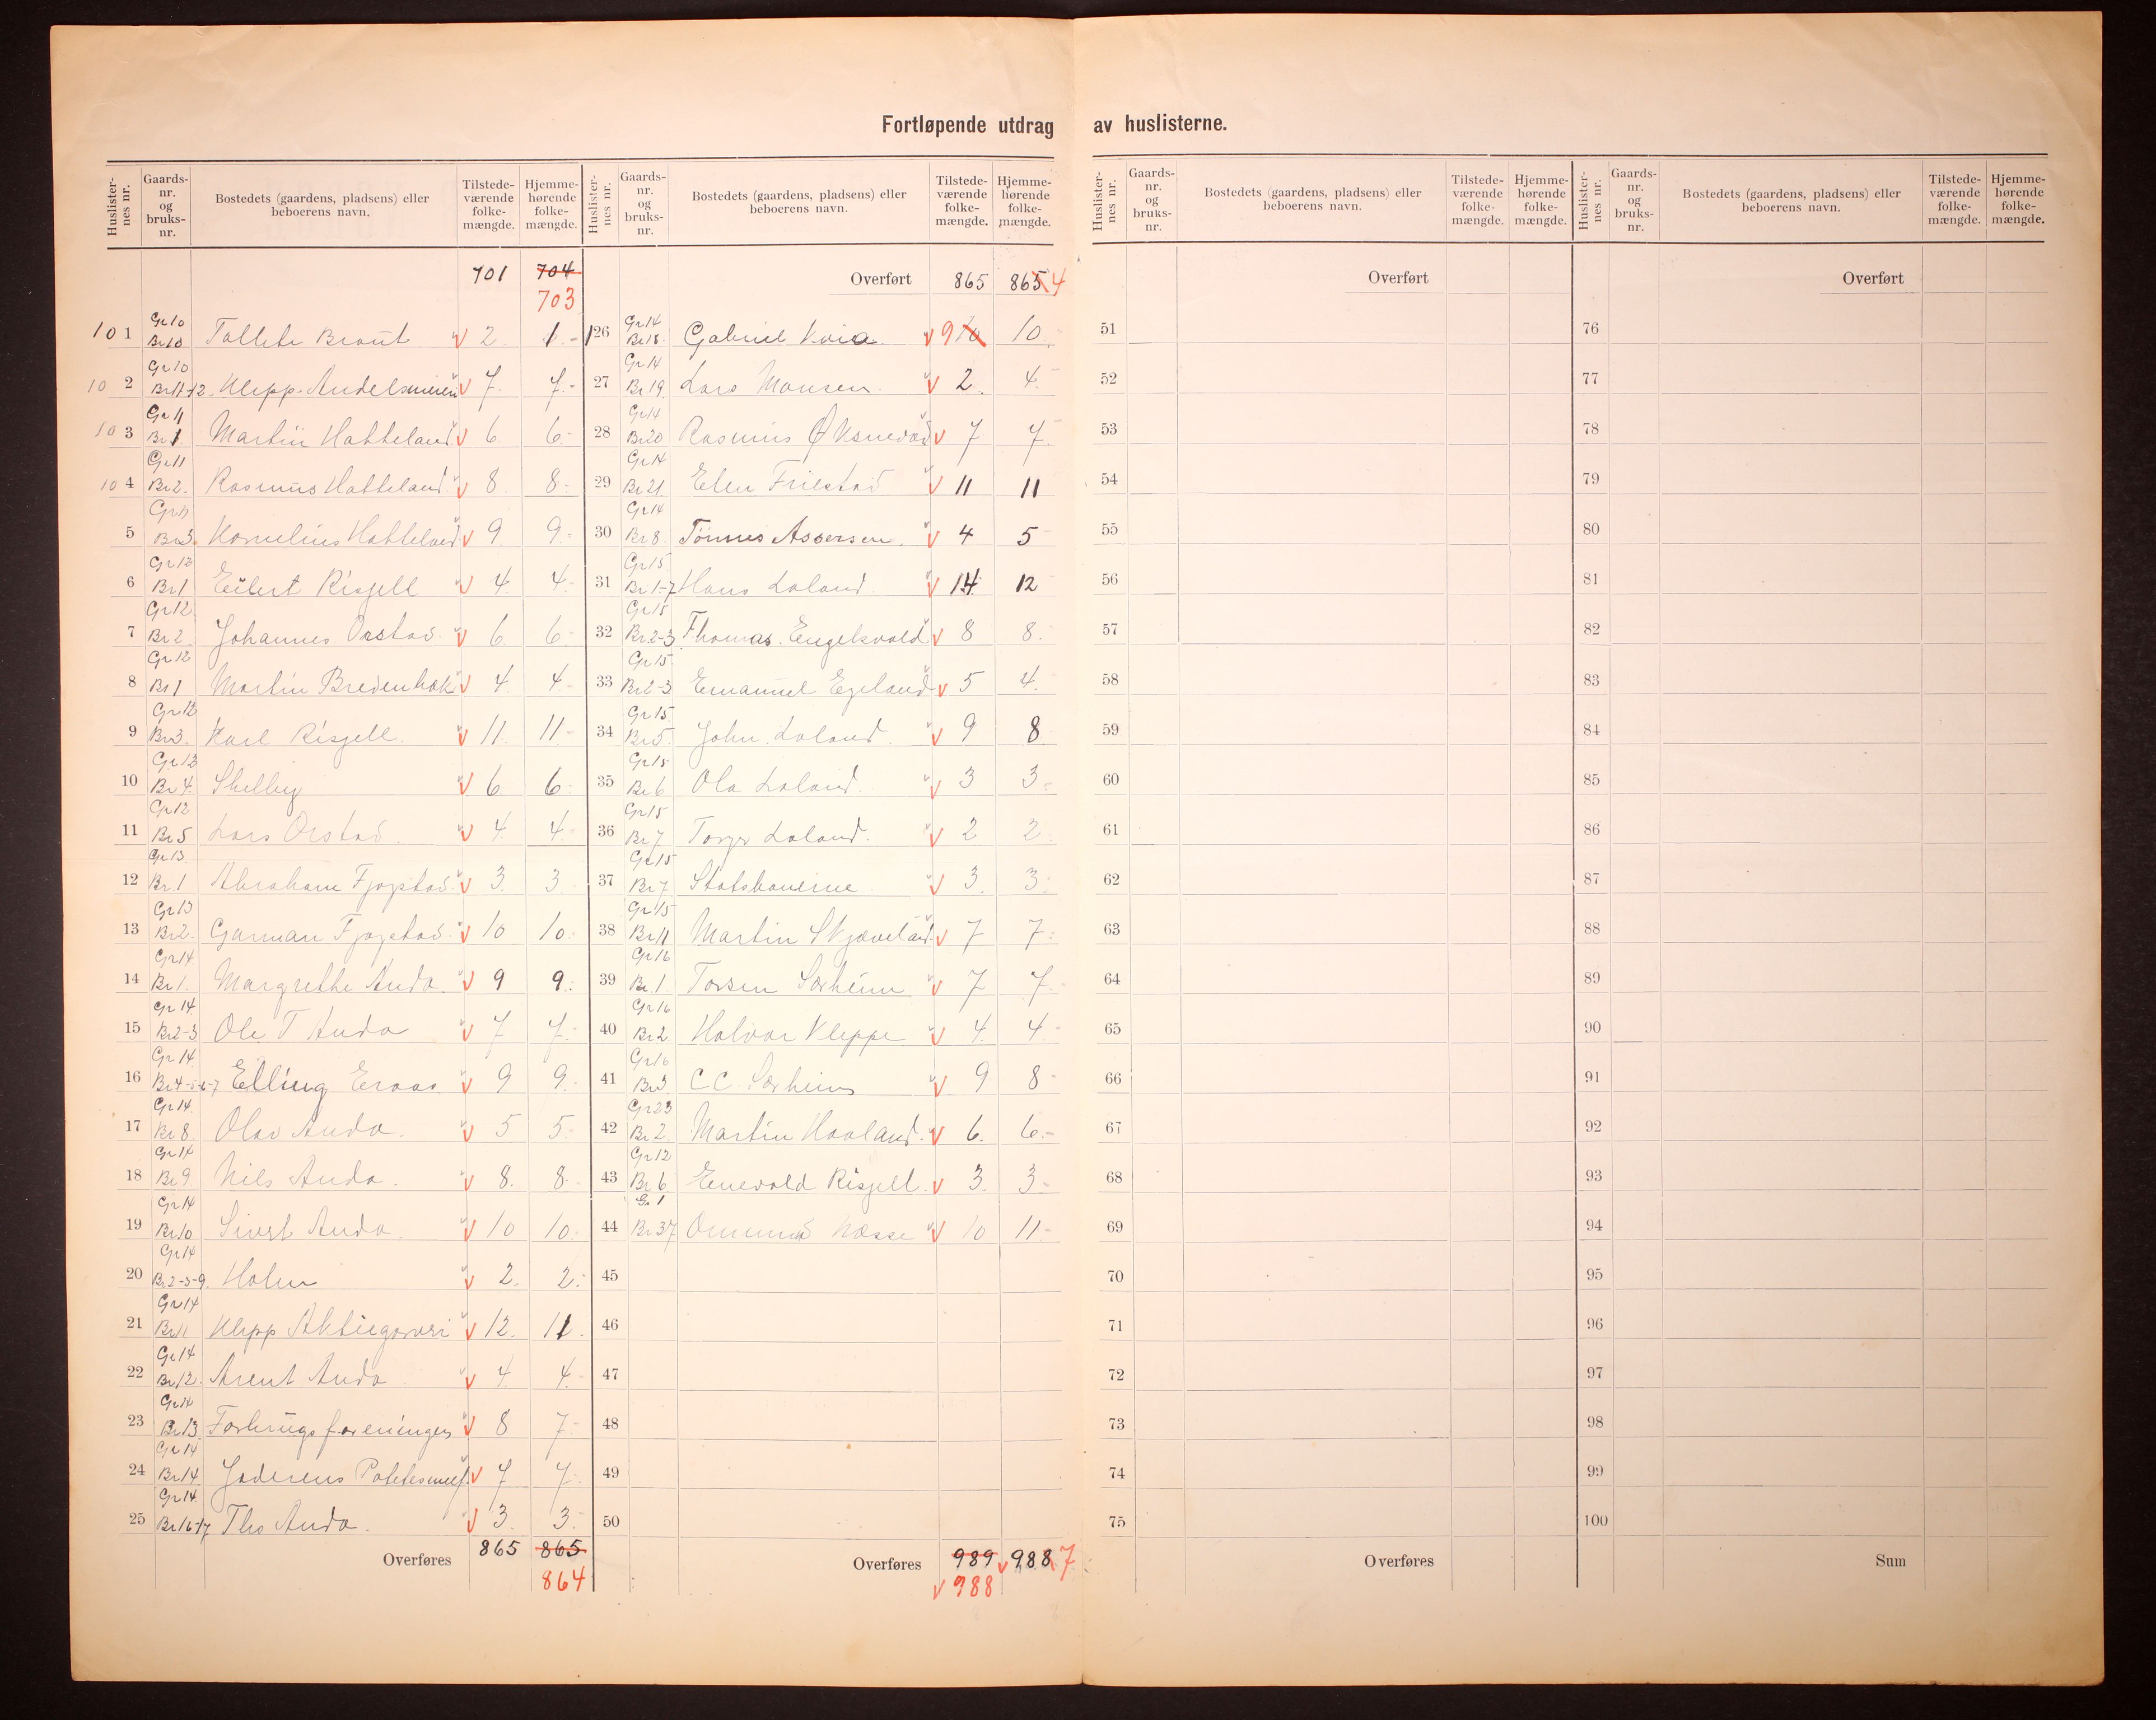 Fortløpende utdrag av huslisterne.
Huslister-nes nr. Gaards-nr. og bruks-nr. Bostedets (gaardens, pladsens) eller beboerens navn. Tilstede-værende folke-mængde. Hjemme-hørende folke-mængde.
701 704
703
Gr 10
10 1 Br 10 Tollete Braut v 2 1 -
Gr 10
10 2 Br 11-12 Klepp Andelsmeieri v 7. 7. -
Gr 11
10 3 Br 1 Martin Hatteland v 6 6 -
Gr 11
10 4 Br 2. Rasmus Hatteland v 8 8 -
Gr 11
5 Br 3. Kornelius Hatteland v 9 9 -
Gr 12
6 Br 1 Eilert Risjell v 4 4 -
Gr 12
7 Br 2 Johannes Orstad v 6 6 -
Gr 12
8 Br 1 Martin Bredenbæk v 4 4 -
Gr 12
9 Br 3. Karl Risjell v 11 11 -
Gr 12
10 Br 4. v 6 6 -
Gr 12
11 Br 5 Lars Orstad v 4 4 -
Gr 13
12 Br 1 Abraham Fjogstad v 3 3
Gr 13
13 Br 2. Garman Fjogstad v 10 10 -
Gr 14
14 Br 1. Margrethe Anda v 9 9 -
Gr 14
15 Br 2-3 Ole T Anda v 7 7 -
Gr 14
16 Br 4-5-6-7 Elling Eraas v 9 9 -
Gr 14
17 Br 8 Olav Anda v 5 5 -
Gr 14
18 Br 9 Nils Anda v 8. 8 -
Gr 14
19 Br 10 Sivert Anda v 10 10 -
Gr 14
20 Br 2-3-9. Holm v 2. 2 -
Gr 14
21 Br 11 Klepp Aktiegarveri v 12. 11.
Gr 14
22 Br 12. Arent Anda v 4 4 -
Gr 14
23 Br 13 Forbrugsforeningen v 8 7 -
Gr 14
24 Br 14. Jæderens v 7 7 -
Gr 14
25 Br 16-17 Ths Anda. v 3. 3 -
Overføres 865 865
864
Huslister-nes nr. Gaards-nr. og bruks-nr. Bostedets (gaardens, pladsens) eller beboerens navn. Tilstede-værende folke-mængde. Hjemme-hørende folke-mængde.
Overført 865 865 4
Gr 14
26 Br 18. Gabriel Kvia v 9 10 10
Gr 14
27 Br 19. Lars Monsen v 2. 4.
Gr 14
28 Br 20 Rasmus Øksnevad v 7 7
Gr 14
29 Br 21 Elen Friestad v 11 11
Gr 14
30 Br 8. Tønnes Assersen v 4 5
Gr 15
31 Br 1-7 Hans Laland v 14 12
Gr 15
32 Br 2-3 Thomas Engelsvold v 8 8.
Gr 15
33 Br 2-3 Emanuel Egeland v 5 4.
Gr 15
34 Br 5. John Laland v 9 8
Gr 15
35 Br 6 Ola Laland v 3 3 -
Gr 15
36 Br 7 Torger Laland. v 2 2
Gr 15
37 Br 7 Statsbanerne v 3. 3
Gr 15
38 Br 11 Martin Skjæveland v 7 7 -
Gr 16
39 Br. 1 Torsen Særheim v 7 7 -
Gr 16
40 Br 2 Halvor Kleppe v 4 4 -
Gr 16
41 Br 3 C C Særheim v 9 8 -
Gr 23
42 Br. 2. Martin Haaland. v 6. 6. -
Gr 12
43 Br 6 Enevald Risjell v 3. 3 -
Gr 1
44 Br 37 Ommund Næsse v 10 11 -
45
46
47
48
49
50
Overføres 989 v 988 7
v 988
Huslister-nes nr. Gaards-nr. og bruks-nr. Bostedets (gaardens, pladsens) eller beboerens navn. Tilstede-værende folke-mængde. Hjemme-hørende folke-mængde.
Overført
51
52
53
54
55
56
57
58
59
60
61
62
63
64
65
66
67
68
69
70
71
72
73
74
75
Overføres
Huslister-nes nr. Gaards-nr. og bruks-nr. Bostedets (gaardens, pladsens) eller beboerens navn. Tilstede-værende folke-mængde. Hjemme-hørende folke-mængde.
Overført
76
77
78
79
80
81
82
83
84
85
86
87
88
89
90
91
92
93
94
95
96
97
98
99
100
Sum